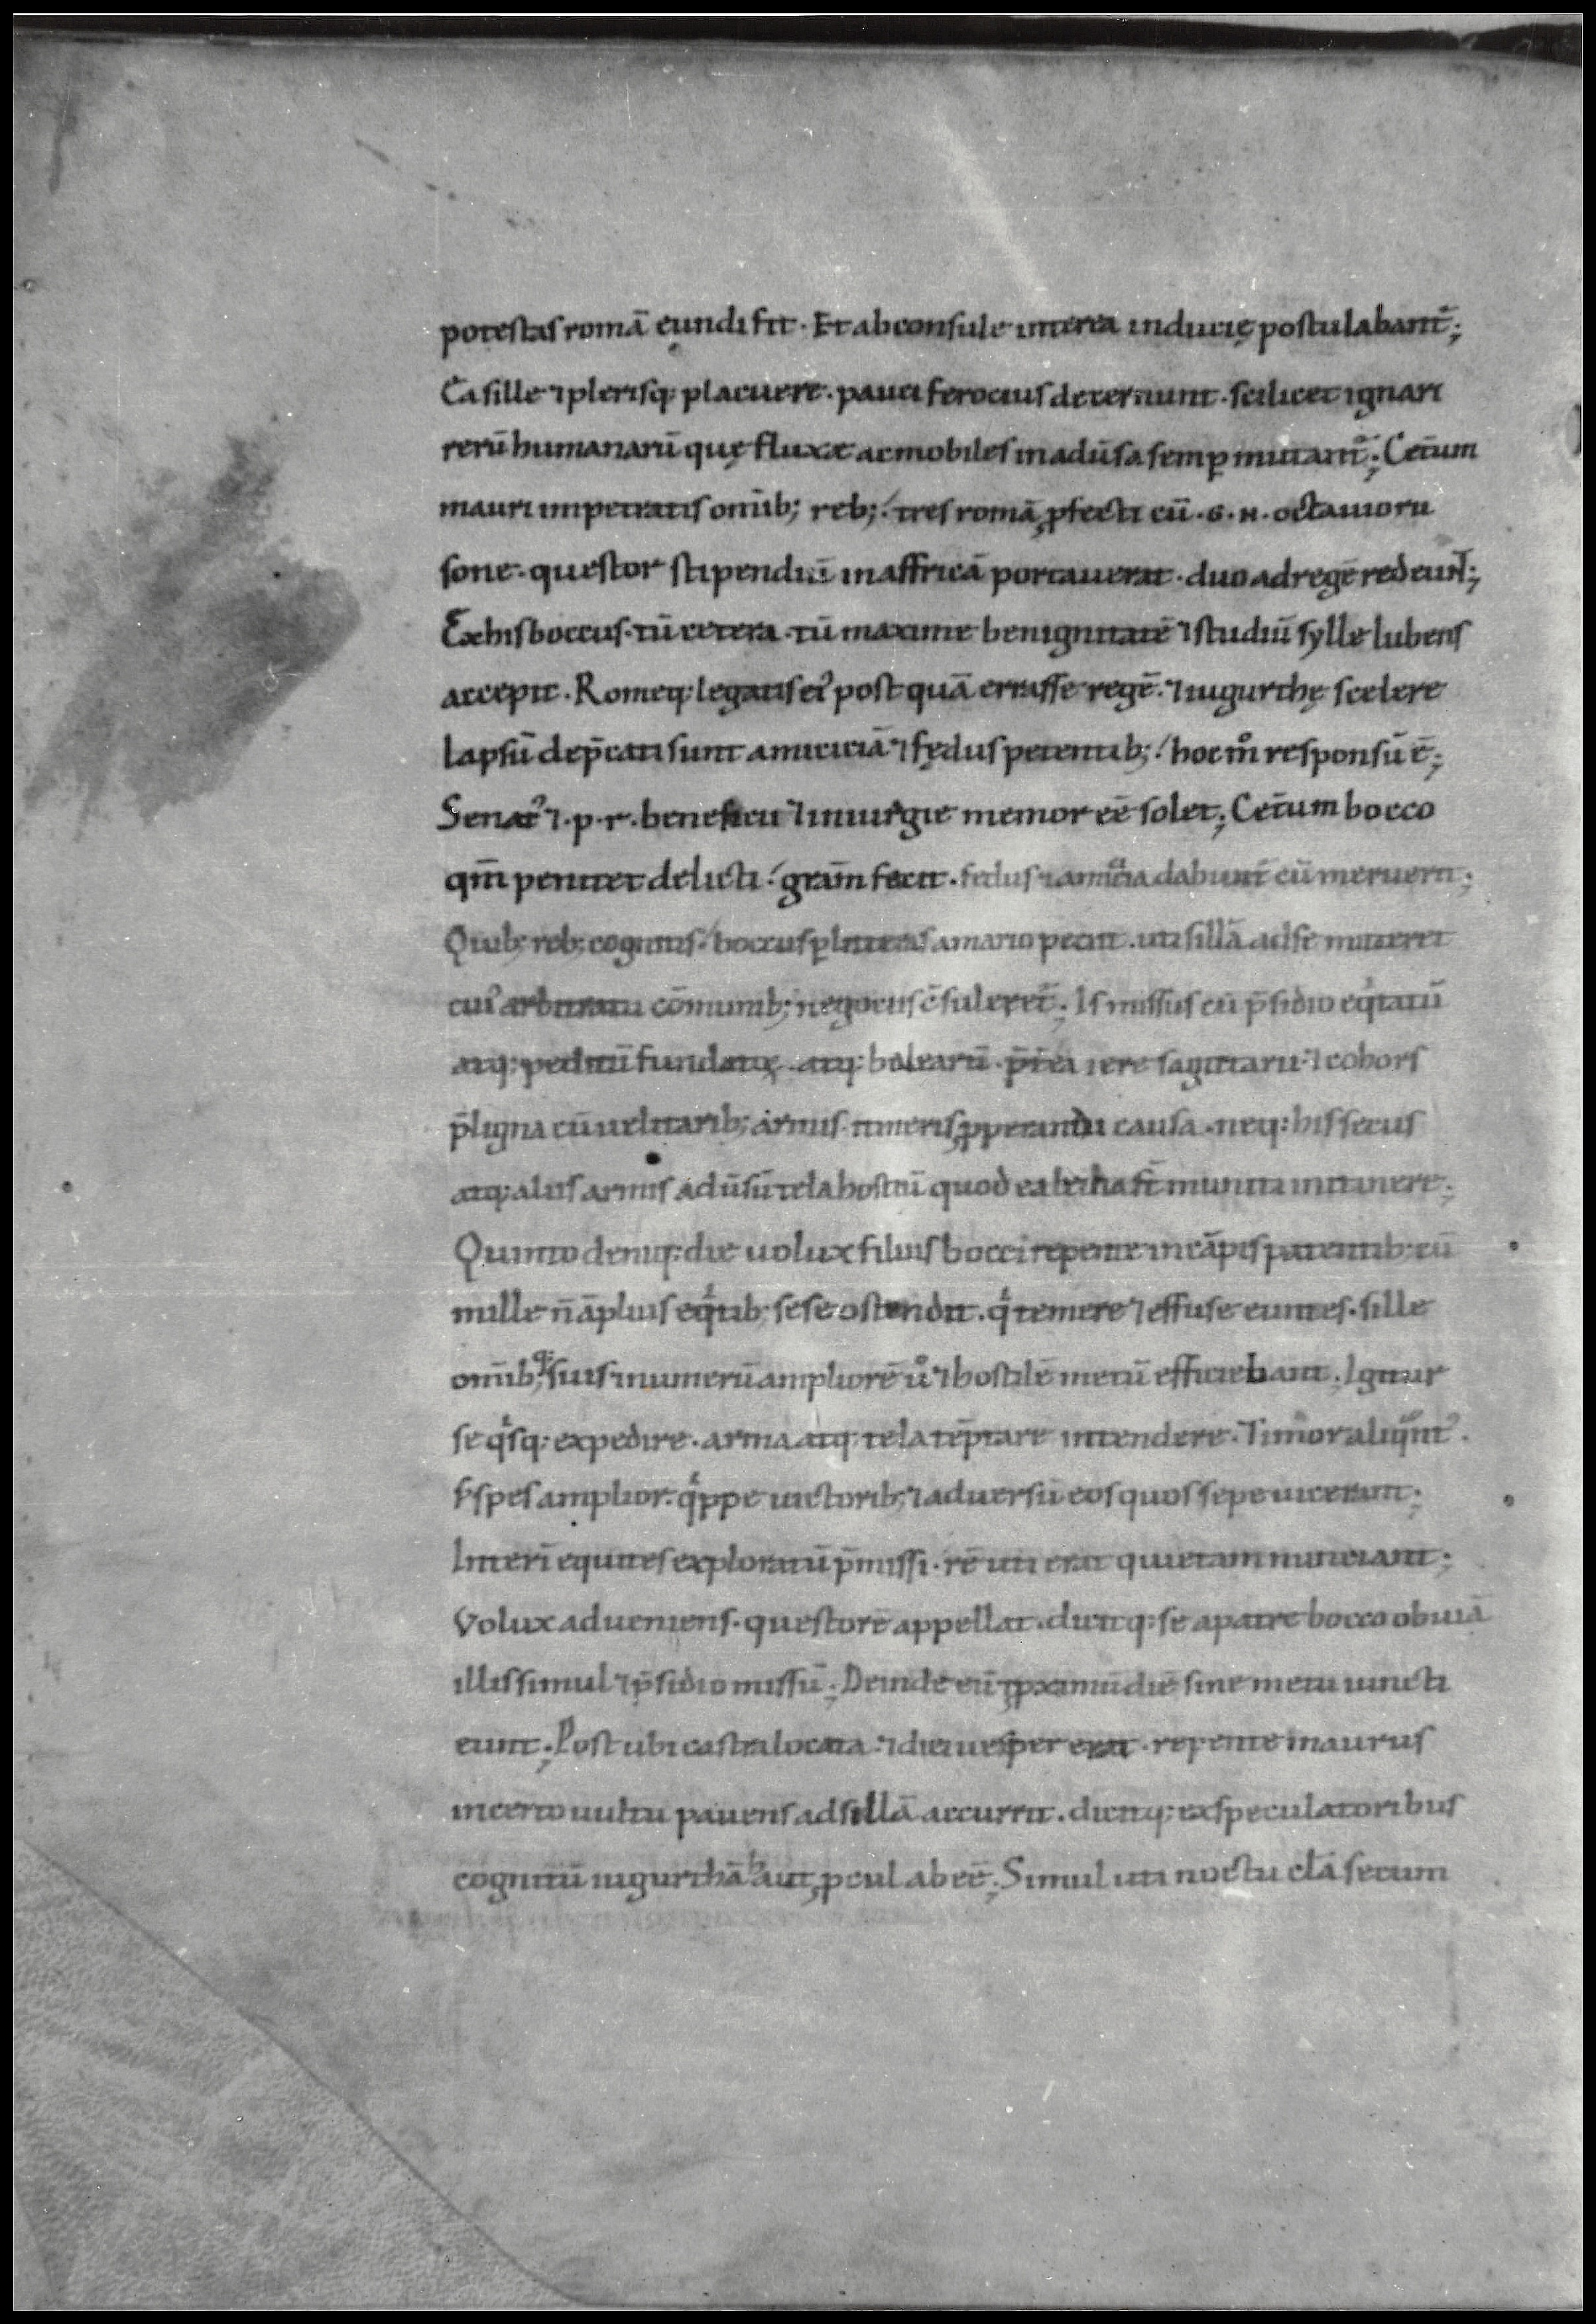 potestas romā eundi fit · Et ab consule interea inducię postulabant̄;
Ea sille ⁊ plerisq; placuere · pauci ferocius decernunt · scilicet ignari
rerū humanarū quę fluxæ ac mobiles in adūsa semꝑ mutant᷑; Cet̄um
mauri impetratis om̄ib; reb; tres romā ꝓfecti cū · G · N · octauio ru
sone · questor stipendiū in affricā portauerat · duo ad regē redeunt̄;
Ex his boccus · tū cetera · tū maxime benignitatē ⁊ studiū sylle lubens
accepit · Romeq; legatis eiꝰ post quā errasse regē · ⁊ iugurthę scelere
lapsū dep̄cati sunt amiciciā ⁊ fędus petentib; hoc m̊ responsū ē;
Senatꝰ ⁊ · p · r · beneficii ⁊ iniurię memor eē solet; Cet̄um bocco
qm̄ penitet delicti gr̄am facit · fedus ⁊ amicitia dabunt᷑ cū meruerit;
Quib; reb; cognitis boccus ꝑ litteras a mario peciit · uti sillā ad se mitteret
cuiꝰ arbitratu cōmunib; negociis c̄suleret᷑; Is missus cū p̄sidio eq̇tatū
atq; peditū funditorę · atq; balearū · p̄t̄ea iere sagittarii · ⁊ cohors
p̄ligna cū uelitarib; armis · itineris ꝓperandi causa · neq; his secus
atq; aliis armis adūsū tela hostiū quod ea leuia st̄ muniti inminere;
Quinto deniq; die uolux filius bocci repente in cāpis patentib; cū
mille n̄ āplius eq̇tib; sese ostendit · q̇ temere ⁊ effuse euntes · sille
om̄ib;q; suis ⁊ numerū ampliorē ů ⁊ hostilē metū efficiebant · Igitur
se q̇sq; expedire · arma atq; tela tēptare intendere · Timor aliq̄ntꝰ ·
s; spes amplior · q̇ppe uictorib; ⁊ aduersū eos quos sepe uicerant;
Interī equites exploratū p̄missi · rē uti erat quietam nunciant;
Volux adueniens · questorē appellat · dicitq; se a patre bocco obuiā
illis simul ⁊ p̄sidio missū; Deinde eū ⁊ ꝓximū diē sine metu iuncti
eunt; Post ubi castra locata ⁊ diei uesper erat · repente maurus
incerto uultu pauens ad sillā accurrit · dicitq; ex speculatoribus
cognitū iugurthā haut ꝓcul abeē; Simul uti noctu clā secum